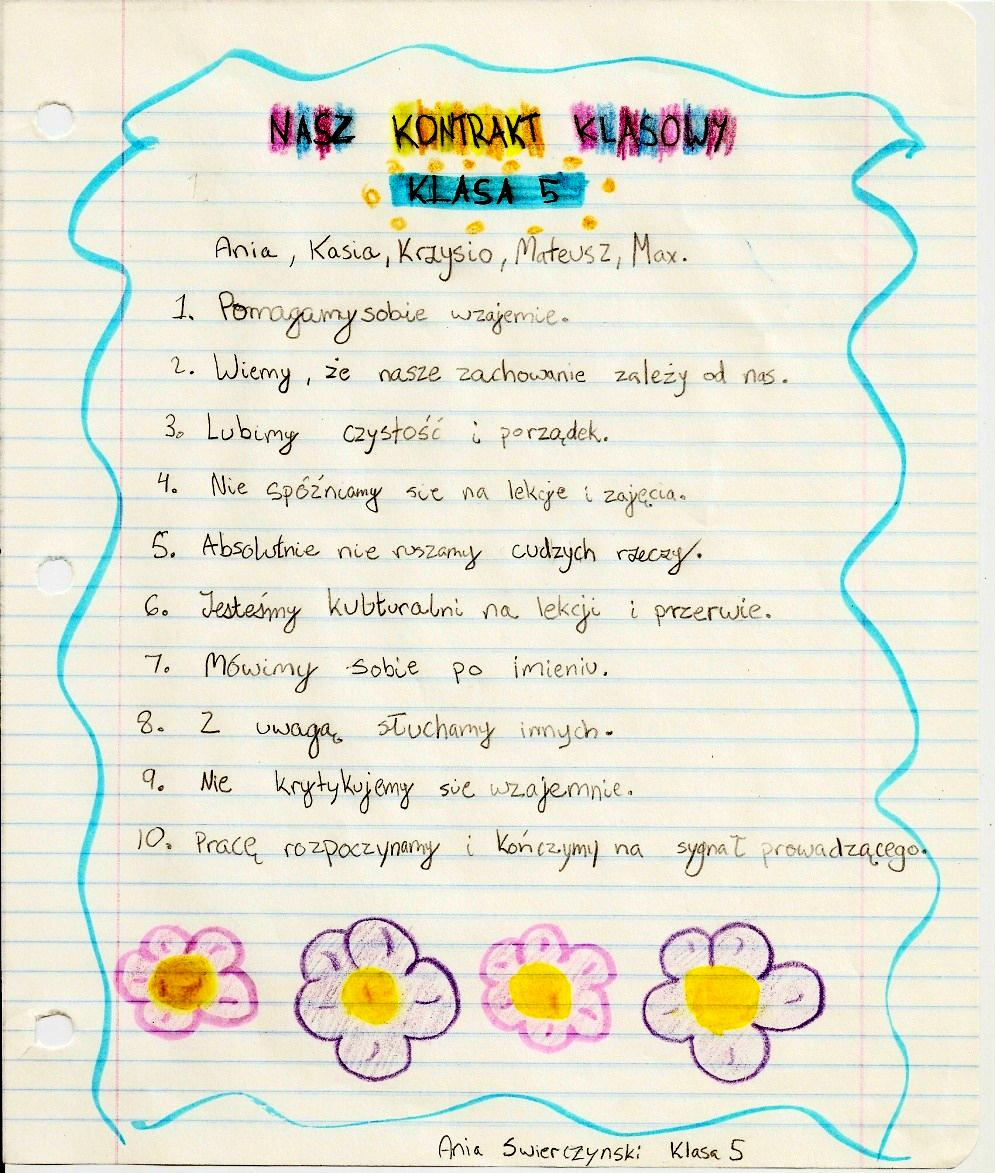 NASZ KONTRAKT KLASOWY
KLASA 5
Ania, Kasia, Krzysio, Mateusz, Max.
1. Pomagamy sobie wzajemie.
2. Wiemy, że nasze zachowanie zależy od nas.
3. Lubimy czystość i porządek.
4. Nie spóźniamy sie na lekcje i zajęcia.
5. Absolutnie nie ruszamy cudzych rzeczy.
6. Jesteśmy kulturalni na lekcji i przerwie.
7. Mówimy sobie po imieniu.
8. Z uwagą słuchamy innych.
9. Nie krytykujemy sie wzajemnie.
10. Pracę rozpoczynamy i kończymy na sygnał prowadzącego.
Ania Swierczynski Klasa 5